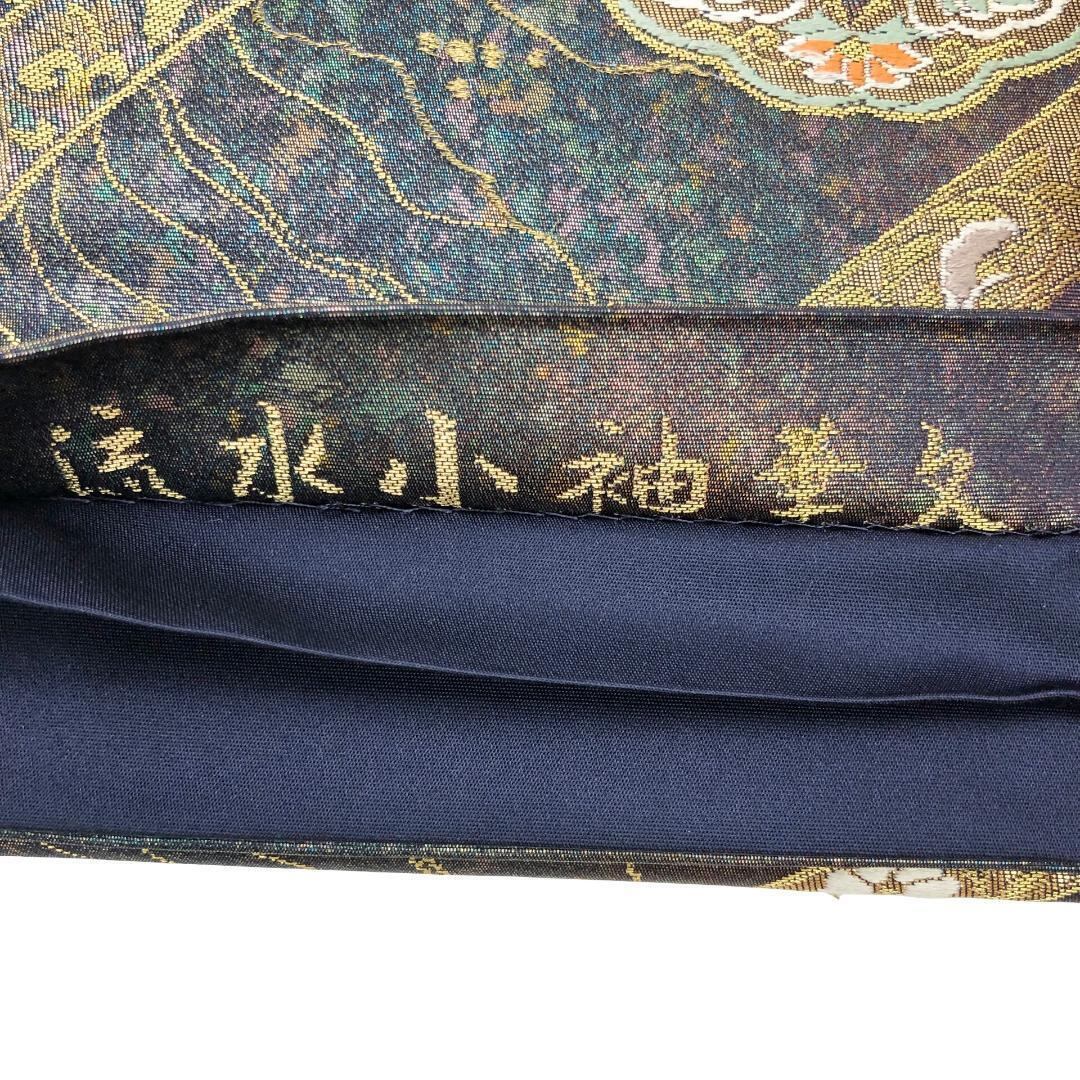 流水小袖華文